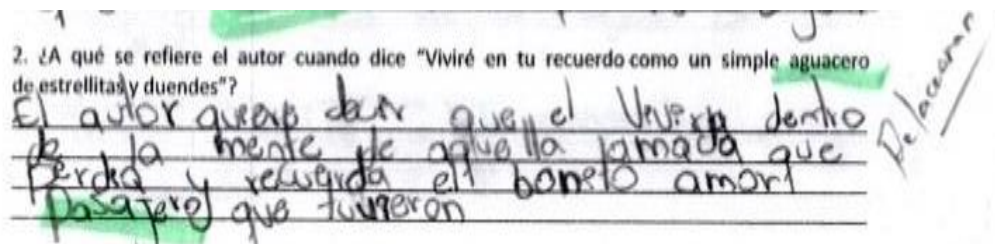 2. ¿A qué se refiere el autor cuando dice "Viviré en tu recuerdo como un simple aguacero
de estrellitas y duendes"?
El autor quiere decir que el Vivirá dentro
de la mente de aquella amada que
Perdio y recuerda el boneto amor
Pasajero que tuvieron